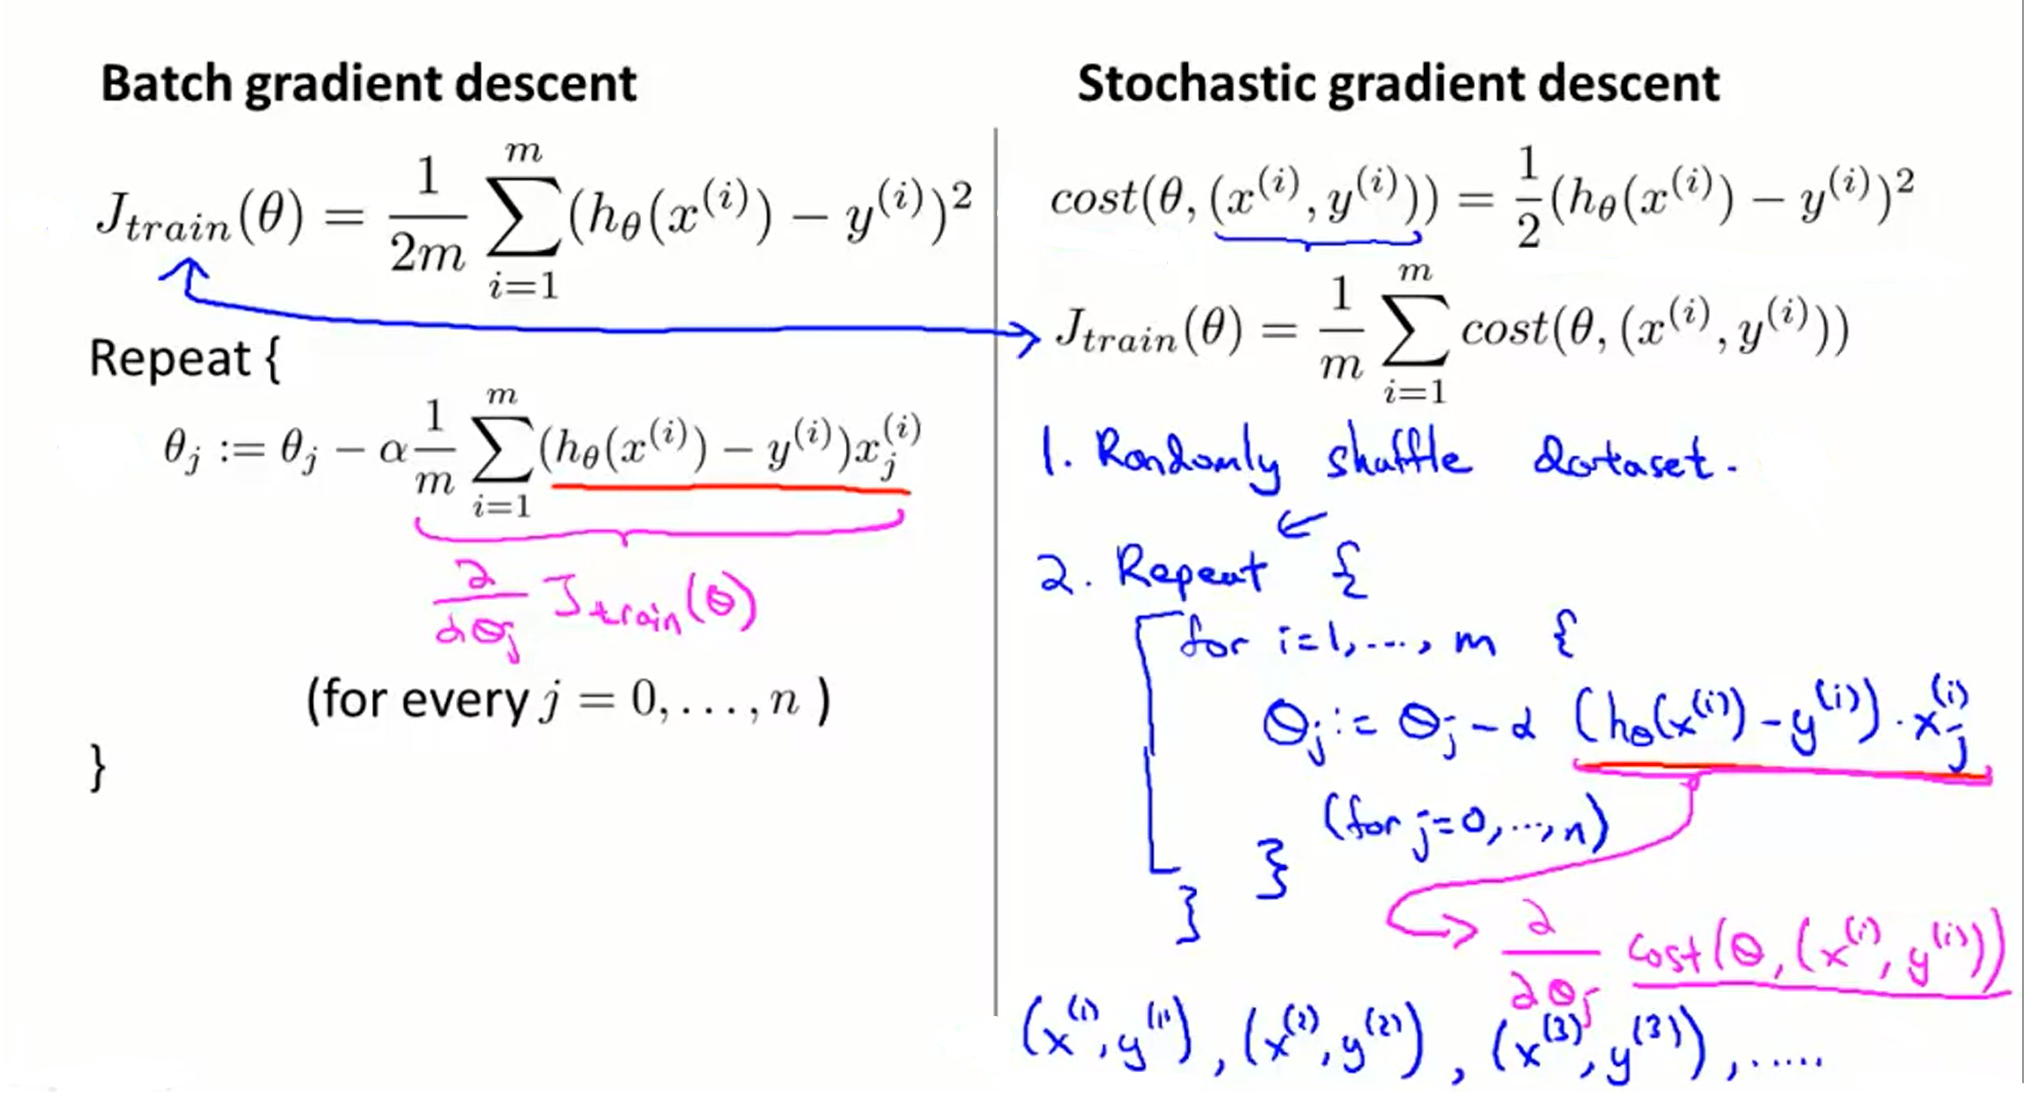 Batch gradient descent
J_{train}(θ) = \frac{1}{2m} \sum_{i=1}^{m} (h_θ(x^{(i)}) − y^{(i)})^2
Repeat {
θ_j := θ_j − α \frac{1}{m} \sum_{i=1}^{m} (h_θ(x^{(i)}) − y^{(i)}) x_j^{(i)}
\frac{∂}{∂θ_j} J_{train}(θ)
(for every j = 0, . . . , n )
}
Stochastic gradient descent
cost(θ, (x^{(i)}, y^{(i)})) = \frac{1}{2} (h_θ(x^{(i)}) − y^{(i)})^2
J_{train}(θ) = \frac{1}{m} \sum_{i=1}^{m} cost(θ, (x^{(i)}, y^{(i)}))
1. Randomly shuffle dataset.
2. Repeat {
for i=1, ..., m {
θ_j := θ_j − α (h_θ(x^{(i)}) − y^{(i)}) · x_j^{(i)}
(for j=0, ..., n)
}
}
\frac{∂}{∂θ_j} cost(θ, (x^{(i)}, y^{(i)}))
(x^{(1)}, y^{(1)}), (x^{(2)}, y^{(2)}), (x^{(3)}, y^{(3)}), .....